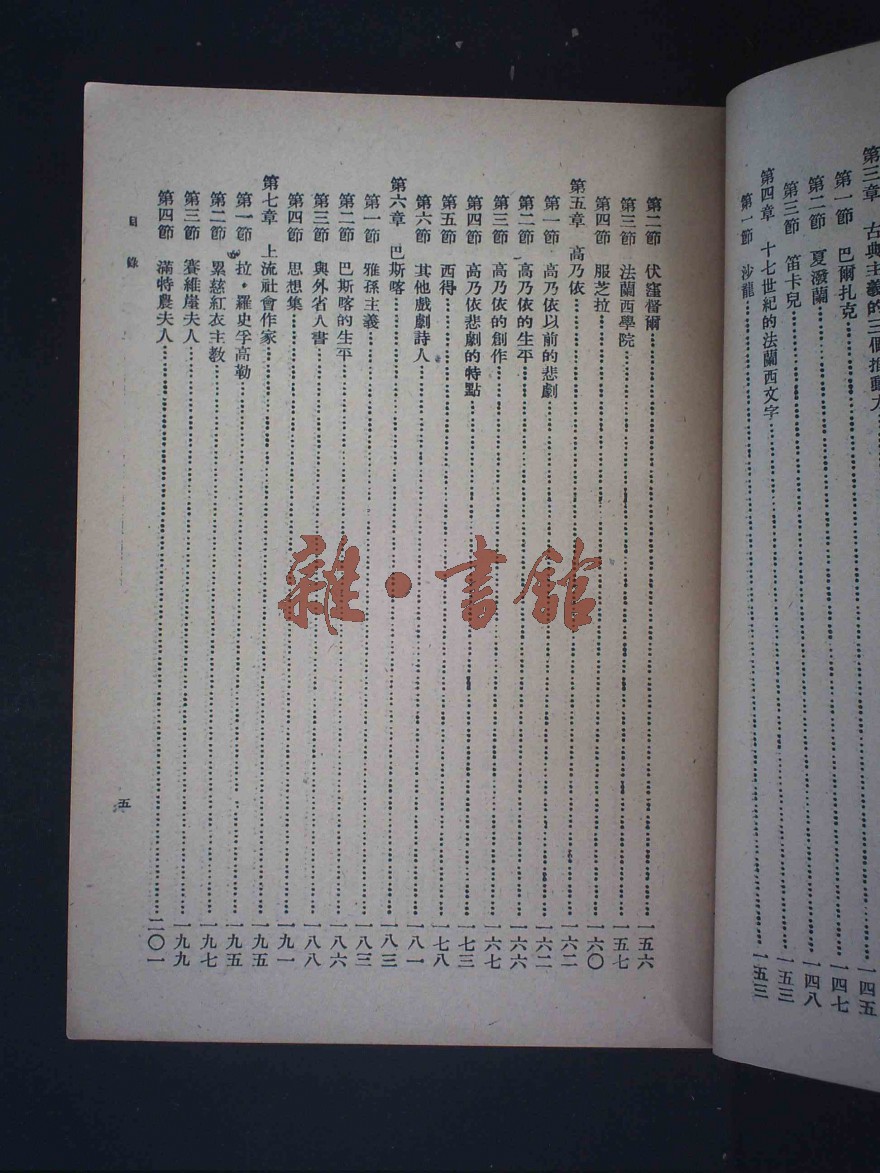 第三章　古典主義的三個推動
第一節　巴爾扎克……一四五
第二節　夏潑蘭……一四七
第三節　笛卡兒……一四八
第四章　十七世紀的法蘭西文字……一五三
第一節　沙龍……一五三
第二節　伏窪督爾……一五六
第三節　法蘭西學院……一五七
第四節　服芝拉……一六〇
第五章　高乃依……一六二
第一節　高乃依以前的悲劇……一六二
第二節　高乃依的生平……一六六
第三節　高乃依的創作……一六七
第四節　高乃依悲劇的特點……一七三
第五節　西得……一七八
第六節　其他戲劇詩人……一八一
第六章　巴斯喀……一八三
第一節　雅孫主義……一八三
第二節　巴斯喀的生平……一八六
第三節　與外省人書……一八八
第四節　思想集……一九一
第七章　上流社會作家……一九五
第一節　拉•羅史孚高勒……一九五
第二節　累慈紅衣主教……一九七
第三節　賽維崖夫人……一九九
第四節　滿特農夫人……二〇一
目錄
五
雜•書館